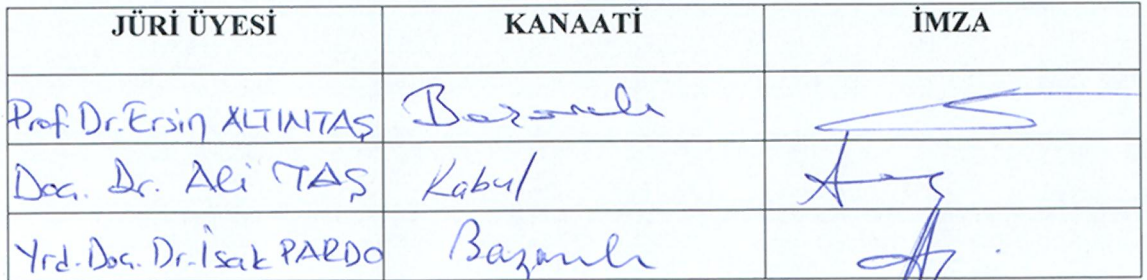 JÜRİ ÜYESİ KANAATİ İMZA
Prof. Dr. Ersin ALTINTAŞ Başarılı
Doç. Dr. Ali TAŞ Kabul
Yrd. Doç. Dr. İsak PARDO Başarılı